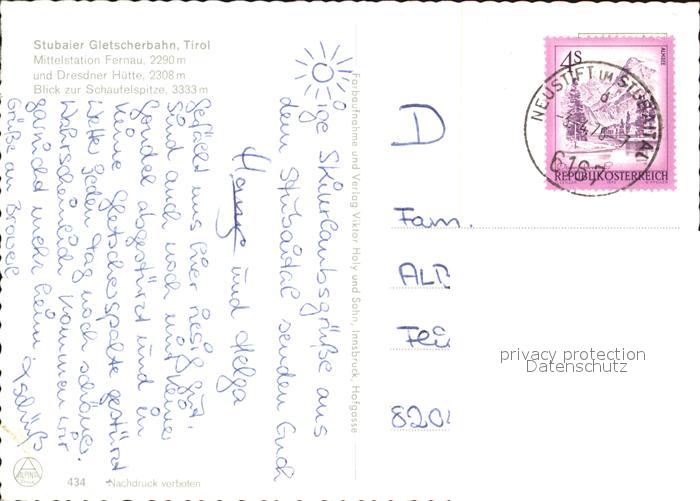 Stubaier Gletscherbahn, Tirol
Mittelstation Fernau, 2290 m
und Dresdner Hütte, 2308 m
Blick zur Schaufelspitze, 3333 m
ige Skiurlaubsgrüße aus
dem Stubaital senden Euch
und Helga
Gefällt uns hier riesig gut.
Sind auch noch mit keiner
Gondel abgestürzt und in
keine Gletscherspalte gestürzt
Wetter jeden Tag noch schöner.
Wahrscheinlich kommen wir
garnicht mehr heim. Tschüß
Grüße an
Farbaufnahme und Verlag Viktor Holy und Sohn, Innsbruck, Hofgasse
4s
ALMSEE
REPUBLIK ÖSTERREICH
NEUSTIFT IM STUBAITAL
6167
D
Fam.
ALP
820
privacy protection
Datenschutz
ALPINA
434 Nachdruck verboten